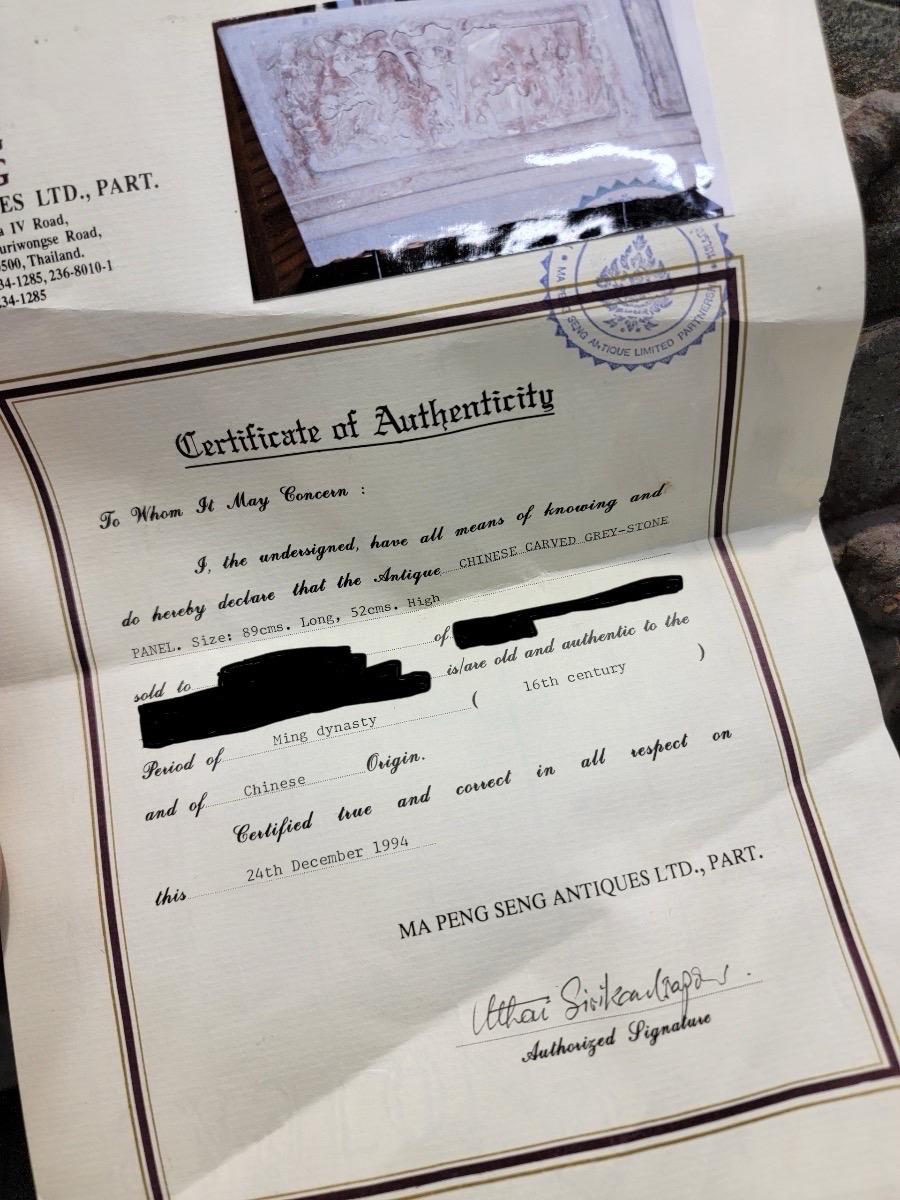 ES LTD., PART.
IV Road,
uriwongse Road,
500, Thailand.
34-1285, 236-8010-1
34-1285
MA PENG SENG ANTIQUE LIMITED PARTNERSH
Certificate of Authenticity
To Whom It May Concern :
I, the undersigned, have all means of knowing and
do hereby declare that the Antique CHINESE CARVED GREY-STONE
PANEL. Size: 89cms. Long, 52cms. High
sold to of
is/are old and authentic to the
Period of Ming dynasty ( 16th century )
and of Chinese Origin.
Certified true and correct in all respect on
this 24th December 1994
MA PENG SENG ANTIQUES LTD., PART.
Authorized Signature